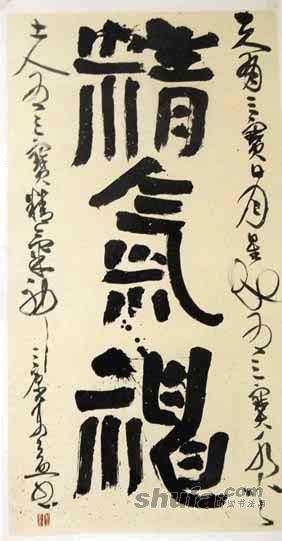 天有三寶日月星地有三寶水火
精氣神
土人有三寶精氣神
shufa.com